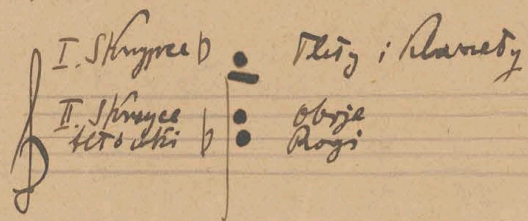 I. Skrzypce Flety i klarnety
II. Skrzypce oboje
Rogi